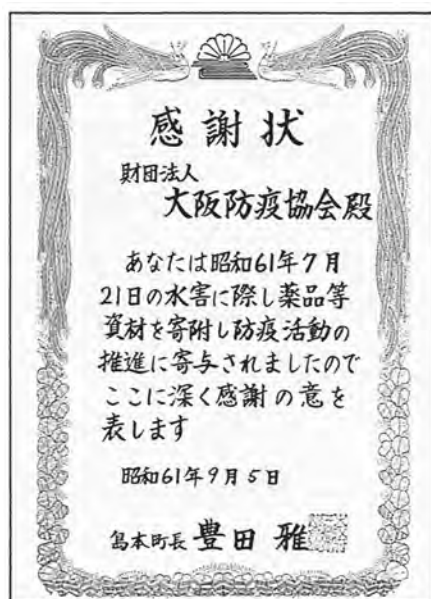 感謝状
財団法人
大阪防疫協会殿
あなたは昭和61年7月
21日の水害に際し薬品等
資材を寄附し防疫活動の
推進に寄与されましたので
ここに深く感謝の意を
表します
昭和61年9月5日
島本町長 豊田 雅